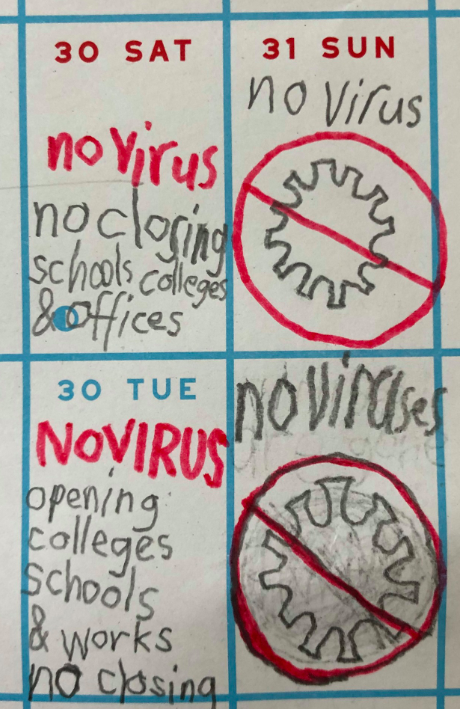 30 SAT
no virus
no closing
schools colleges
& offices
31 SUN
no virus
30 TUE
NOVIRUS
opening
colleges
schools
& works
no closing
noviruses